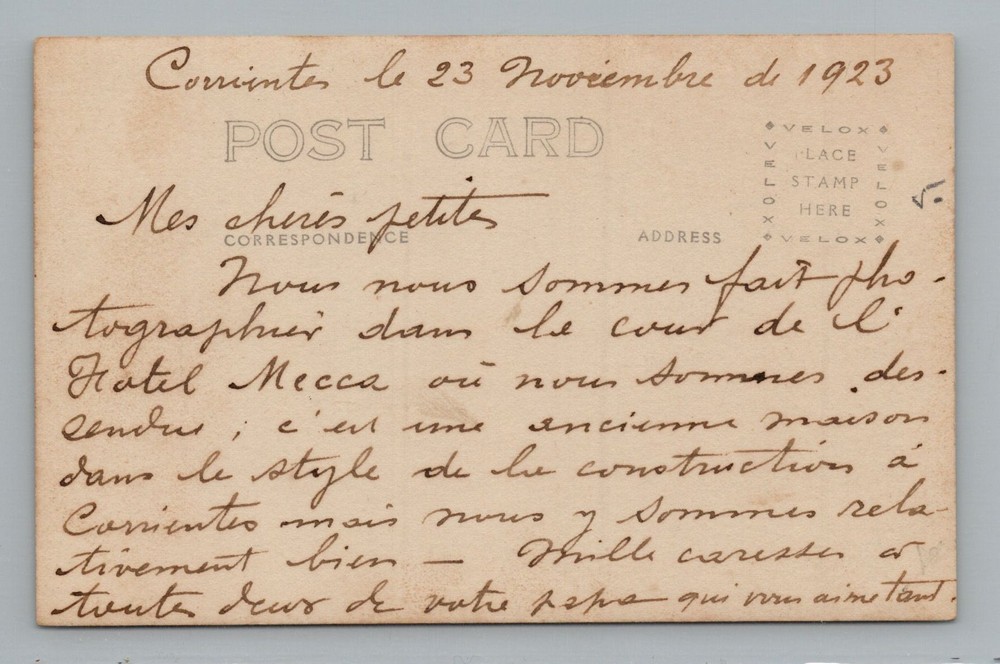 Corrientes le 23 Noviembre de 1923
POST CARD
VELOX
VELOX
PLACE
STAMP
HERE
VELOX
VELOX
Mes cherès petites
CORRESPONDENCE
ADDRESS
Nous nous sommes fait pho-
tographier dans la cour de l'
Hotel Mecca où nous sommes des-
sendus; c'est une ancienne maison
dans le style de la construction à
Corrientes mais nous y sommes rela-
tivement bien — Mille caresses à
toutes deux de votre papa qui vous aime tant.